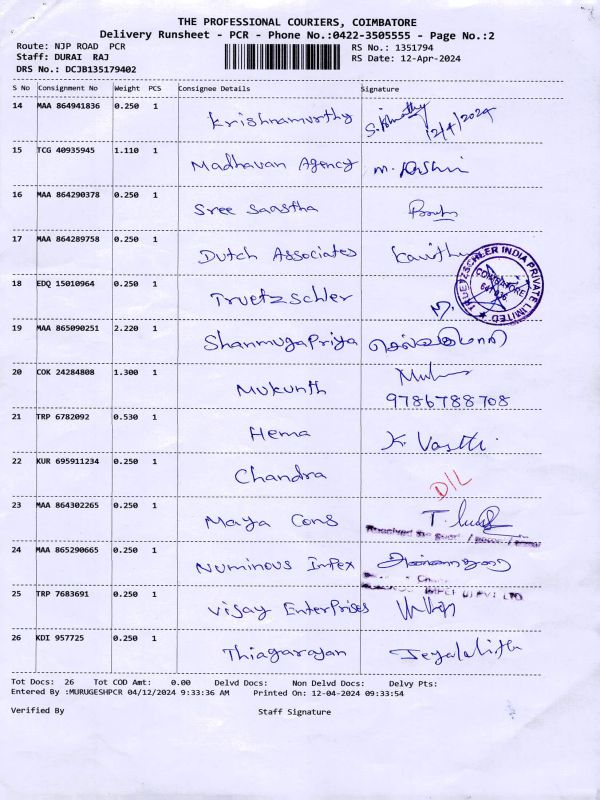 THE PROFESSIONAL COURIERS, COIMBATORE
Delivery Runsheet - PCR - Phone No.:0422-3505555 - Page No.:2
Route: NJP ROAD PCR
RS No.: 1351794
Staff: DURAI RAJ
RS Date: 12-Apr-2024
DRS No.: DCJB135179402
S No Consignment No Weight PCS Consignee Details Signature
14 MAA 864941836 0.250 1 Krishnamurthy 12/4/2024
15 TCG 40935945 1.110 1 Madhavan Agency
16 MAA 864290378 0.250 1 Sree Saastha
17 MAA 864289758 0.250 1 Dutch Associates
TRUETZSCHLER INDIA PRIVATE LIMITED
COIMBATORE
18 EDQ 15010964 0.250 1 Truetzschler
19 MAA 865090251 2.220 1 Shanmugapriya
20 COK 24284808 1.300 1 Mukunth
9786788708
21 TRP 6782092 0.530 1 Hema
22 KUR 695911234 0.250 1 Chandra D/L
23 MAA 864302265 0.250 1 Maya Cons
24 MAA 865290665 0.250 1 Numinous Impex
25 TRP 7683691 0.250 1 Vijay Enterprises
26 KDI 957725 0.250 1 Thiagarajan
Tot Docs: 26 Tot COD Amt: 0.00 Delvd Docs: Non Delvd Docs: Delvy Pts:
Entered By :MURUGESHPCR 04/12/2024 9:33:36 AM Printed On: 12-04-2024 09:33:54
Verified By Staff Signature